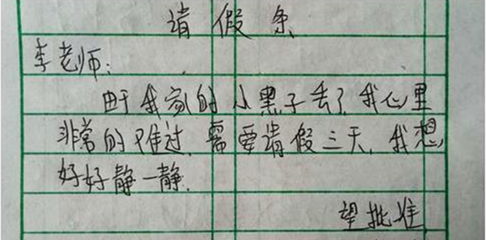 请假条
李老师:
由于我家的小黑子丢了,我心里
非常的难过,需要请假三天,我想
好好静一静.
望批准